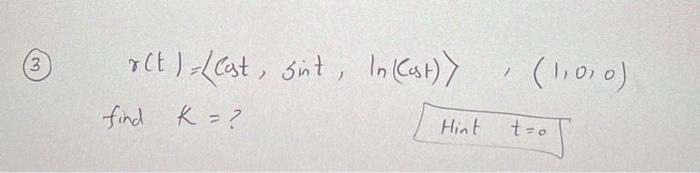 3 r(t) = ⟨Cost, Sint, ln(Cost)⟩, (1,0,0)
find K = ?
Hint t=0